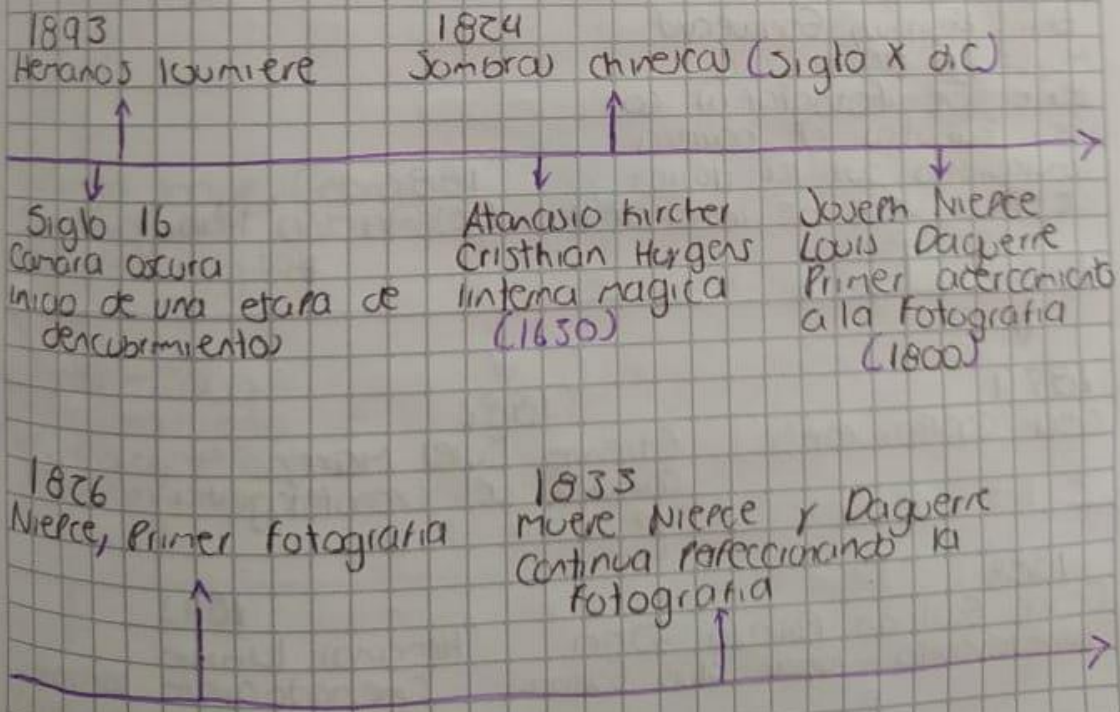 1893
Hermanos loumiere
1824
Sombras chinescas (Siglo X a.C)
Siglo 16
Camara oscura
inicio de una etapa de
dencubrimientos
Atanasio Kircher
Cristhian Huygens
linterna magica
(1650)
Joseph Niepce
Louis Daguerre
Primer acercamiento
a la fotografia
(1800)
1826
Niepce, Primer fotografia
1833
muere Niepce y Daguerre
continua perfeccionando la
fotografia